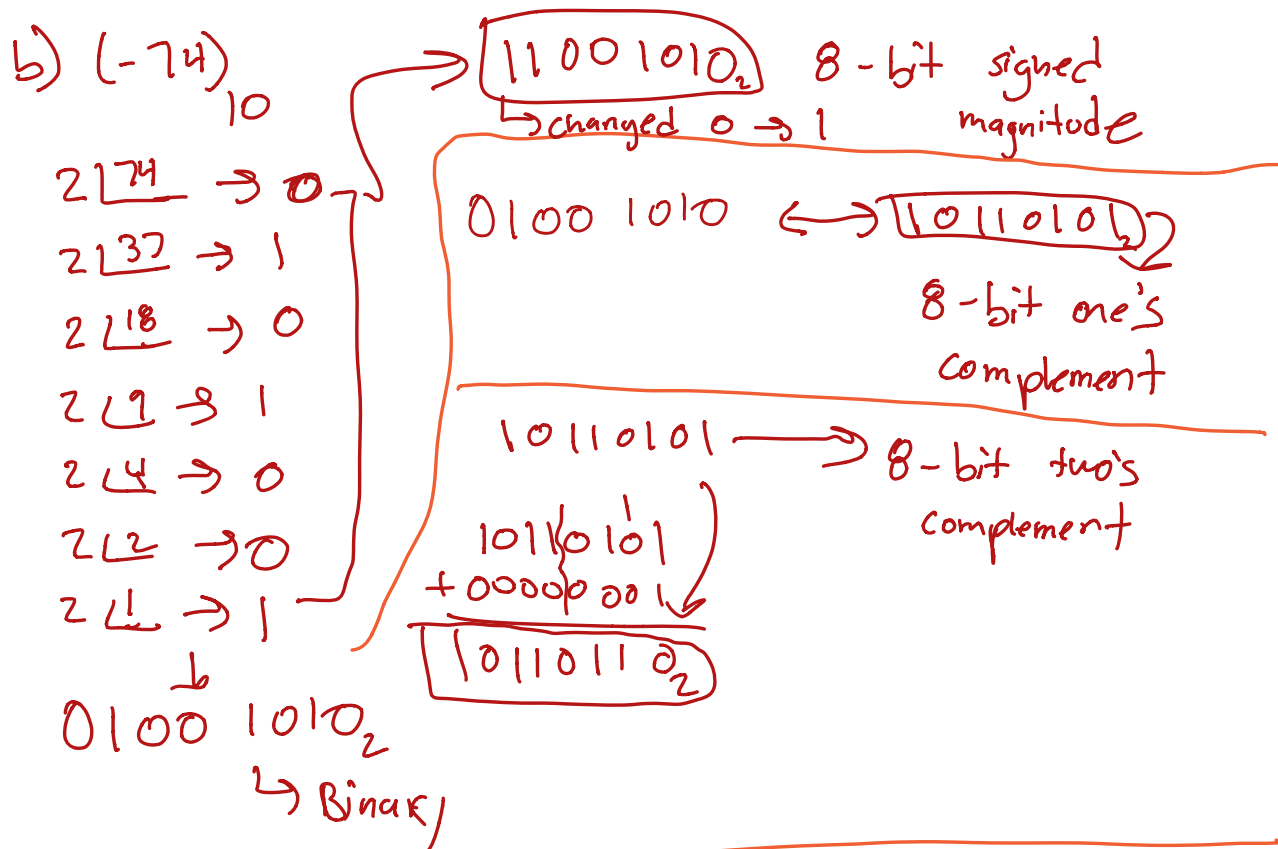 b) (-74)₁₀
2 74 → 0
2 37 → 1
2 18 → 0
2 9 → 1
2 4 → 0
2 2 → 0
2 1 → 1
↓
0100 1010₂
↳ Binary
11001010₂ 8-bit signed magnitude
↳ changed 0 → 1
0100 1010 ↔ 10110101₂
8-bit one's
complement
10110101 → 8-bit two's
complement
1
10110101
+00000001
10110110₂